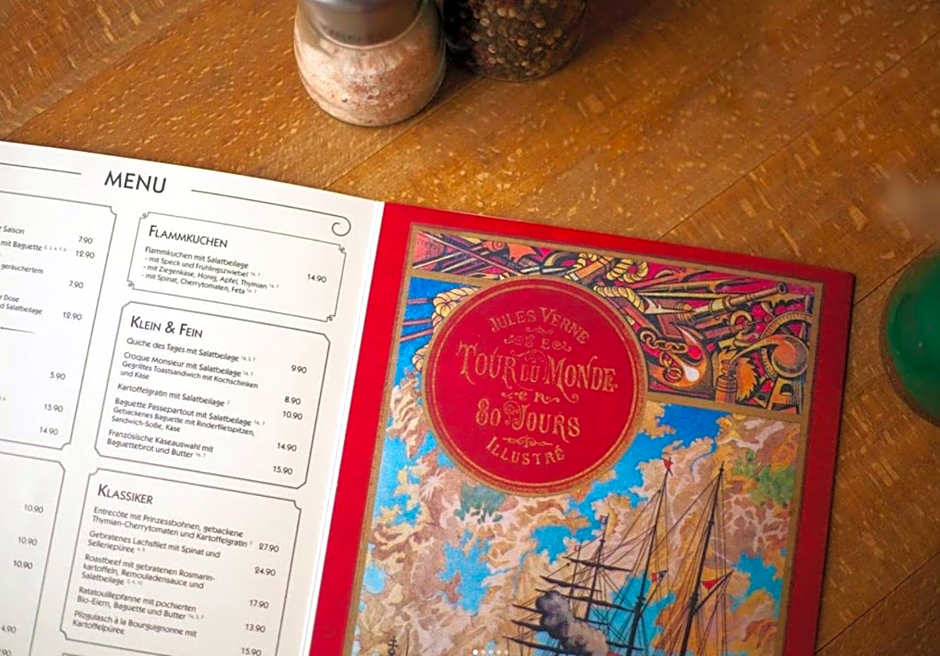 MENU
Saison
7.90
mit Baguette
12.90
geräuchertem
7.90
Dose
und Salatbeilage
12.90
5.90
15.90
14.90
10.90
10.90
4.90
FLAMMKUCHEN
Flammkuchen mit Salatbeilage
- mit Speck und Frühlingszwiebel 14.90
- mit Ziegenkäse, Honig, Apfel, Thymian
- mit Spinat, Cherrytomaten, Feta
KLEIN & FEIN
Quiche des Tages mit Salatbeilage 9.90
Croque Monsieur mit Salatbeilage
Gegrilltes Toastsandwich mit Kochschinken
und Käse 8.90
Kartoffelgratin mit Salatbeilage 10.90
Baguette Passepartout mit Salatbeilage
Gebackenes Baguette mit Rinderfiletspitzen,
Sandwich-Soße, Käse 14.90
Französische Käseauswahl mit
Baguettebrot und Butter 15.90
KLASSIKER
Entrecôte mit Prinzessbohnen, gebackene
Thymian-Cherrytomaten und Kartoffelgratin 27.90
Gebratenes Lachsfilet mit Spinat und
Selleriepüree 24.90
Roastbeef mit gebratenen Rosmarin-
kartoffeln, Remouladensauce und
Salatbeilage 17.90
Ratatouillepfanne mit pochierten
Bio-Eiern, Baguette und Butter 13.90
Pilzgulasch à la Bourguignonne mit
Kartoffelpüree 15.90
JULES VERNE
LE
TOUR DU MONDE
EN
80 JOURS
ILLUSTRÉ